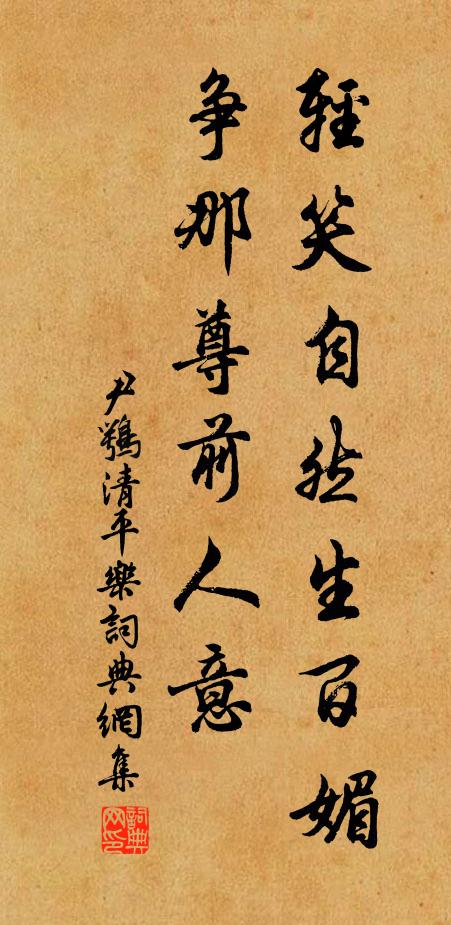 輕笑自然生百媚
争那尊前人意
尹鶚清平樂詞典網集
詞典网印